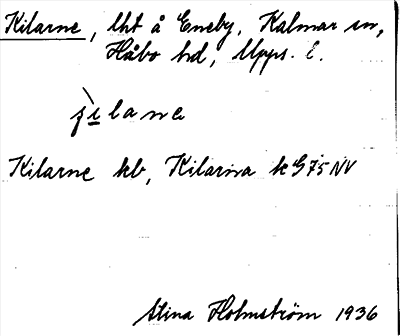 Kilarne, lht å Eneby, Kalmar sn,
Håbo hd, Upps. l.
ʃi̱lane
Kilarne kb, Kilarna k G 75 NV
Stina Holmström 1936